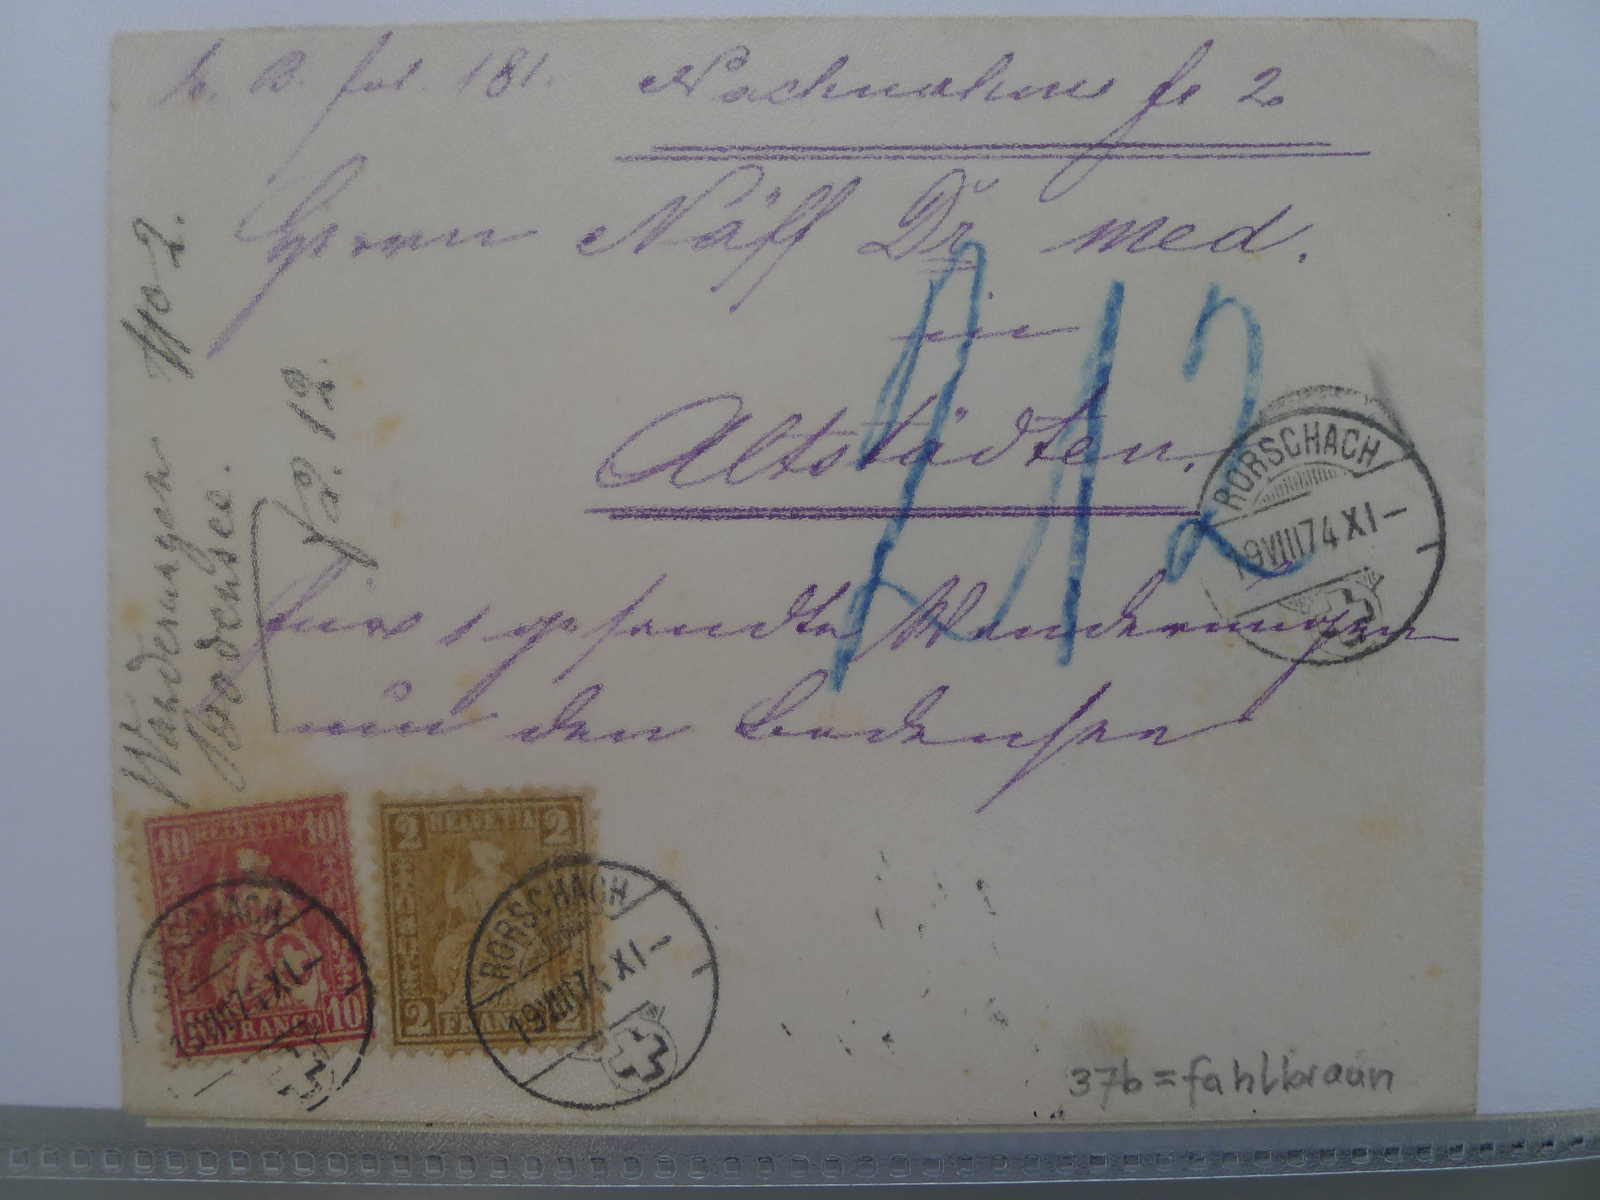 B. fol. 181. Nachnahme fr 2
Herrn Näff Dr med.
in
Altstädten.
für 1 gesandte Wanderungen
um den Bodensee
Wanderungen No 2.
Bodensee.
fr. 12.
12
RORSCHACH
19 VIII 74 XI-
10 HELVETIA 10
FRANCO 10
RORSCHACH
19 VIII 74 XI-
2 HELVETIA 2
2 FRANCO 2
RORSCHACH
19 VIII 74 XI-
37b = fahlbraun